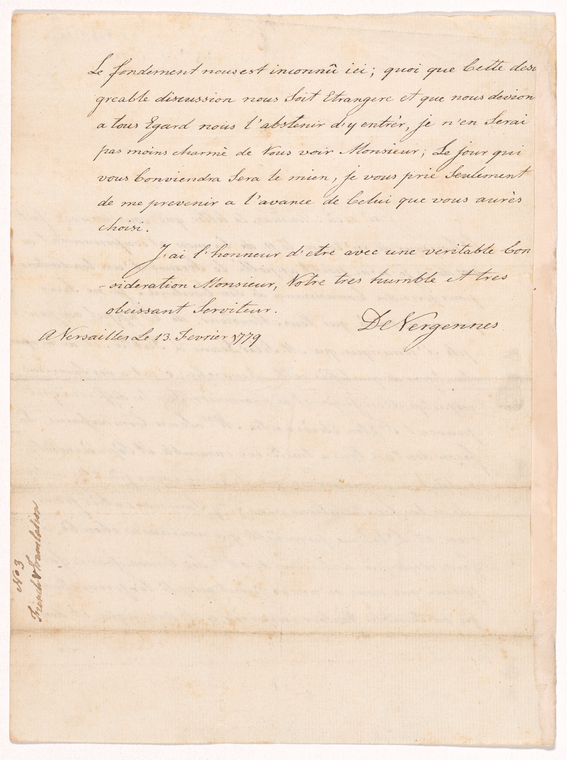 Le fondement nous est inconnû ici; quoi que Cette desa
greable discussion nous Soit Etrangere et que nous devion
a tous Egard nous l'abstenir d'y entrèr, je n'en Serai
pas moins charmé de Vous voir Monsieur; Le jour qui
vous Conviendra Sera le mien, je vous prie Seulement
de me prevenir a l'avance de Celui que vous aurès
choisi.
J'ai l'honneur d'etre avec une veritable Con
-sideration Monsieur, Votre tres humble et tres
obeissant Serviteur.
De Vergennes
A Versailles Le 13. Fevrier 1779
No 3
French & Translation